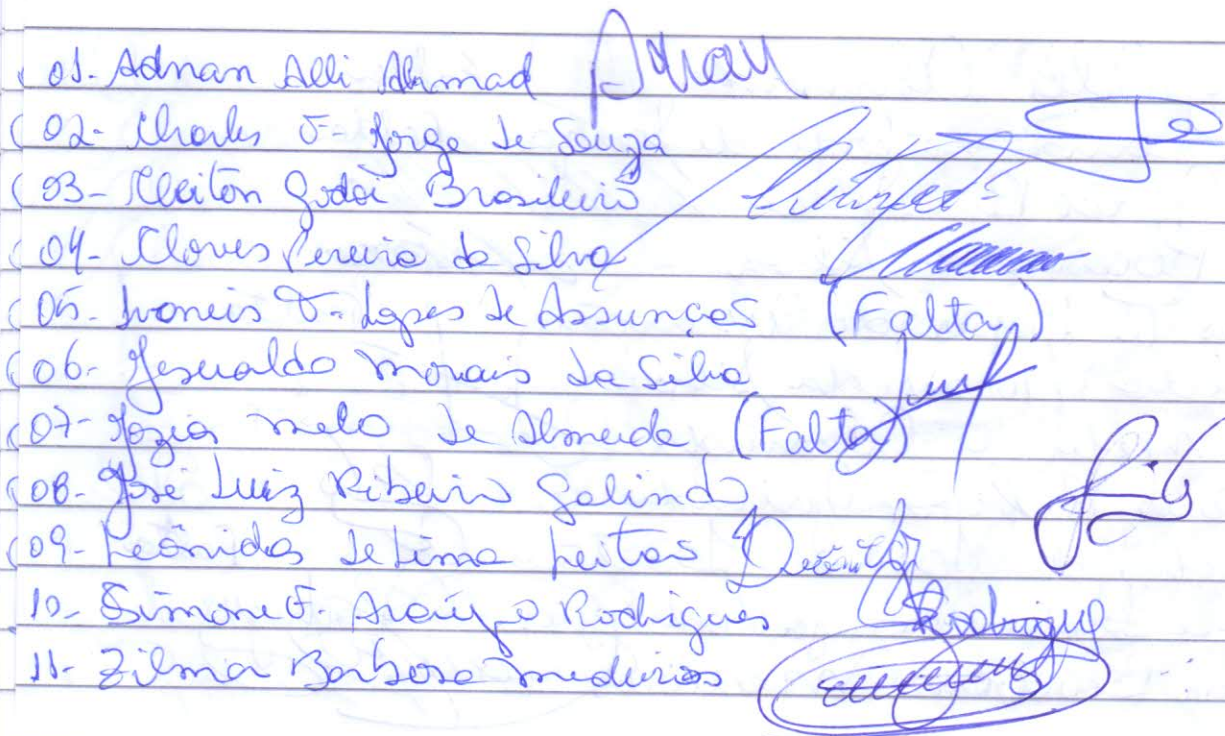 01- Adnan Alli Ahmad Adnan
02- Charles F. Jorge de Souza
03- Cleiton Godoi Brasileiro
04- Cloves Pereira da Silva
05- Ivoneis F. Lopes de Assunção (Falta)
06- Jesualdo Morais da Silva
07- Jozias Melo de Almeida (Falta)
08- José Luiz Ribeiro Galindo
09- Leônidas de Lima Leitão
10- Simone F. Araújo Rodrigues Rodrigues
11- Zilma Barbosa Medeiros